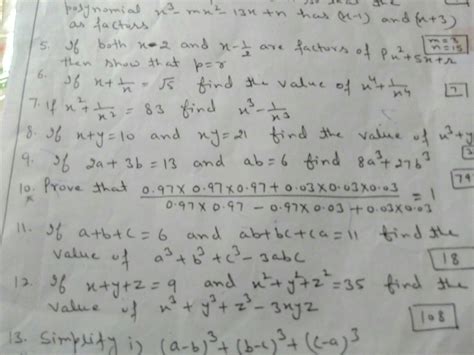 polynomial x³- mx²- 13x + n has (x-1) and (x+3)
as factors
m=3
n=15
5. If both x-2 and x-1/2 are factors of px²+5x+r
then show that p=r
6. If x+1/x = √5 find the value of x⁴+1/x⁴
7
7. If x²+1/x² = 83 find x³-1/x³
8. If x+y=10 and xy=21 find the value of x³+y
9. If 2a+3b=13 and ab=6 find 8a³+27b³
10. Prove that 0.97×0.97×0.97+0.03×0.03×0.03/0.97×0.97-0.97×0.03+0.03×0.03 = 1
79
11. If a+b+c=6 and ab+bc+ca=11 find the
value of a³+b³+c³-3abc
18
12. If x+y+z=9 and x²+y²+z²=35 find the
value of x³+y³+z³-3xyz
108
13. Simplify i) (a-b)³+(b-c)³+(c-a)³